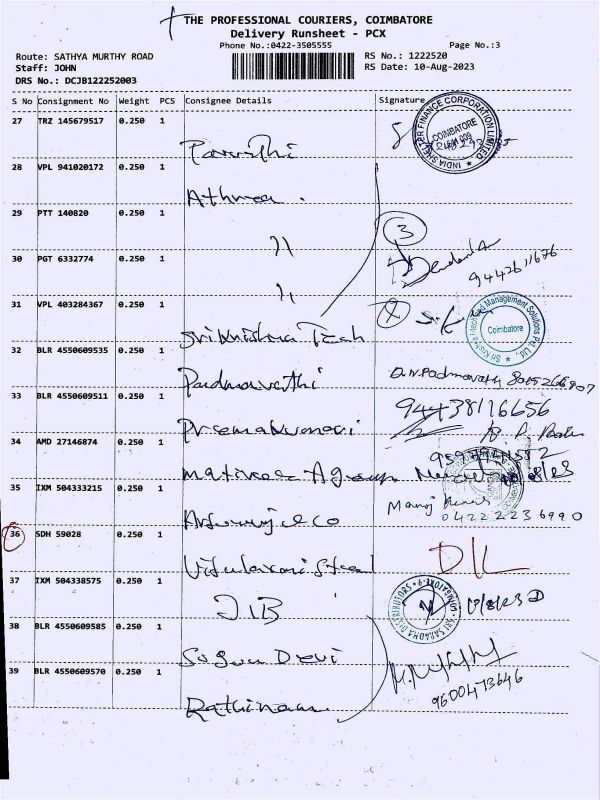 THE PROFESSIONAL COURIERS, COIMBATORE
Delivery Runsheet - PCX
Phone No.:0422-3505555
Page No.:3
Route: SATHYA MURTHY ROAD
RS No.: 1222520
Staff: JOHN
RS Date: 10-Aug-2023
DRS No.: DCJB122252003
S No Consignment No Weight PCS Consignee Details Signature
27 TRZ 145679517 0.250 1
INDIA SHELTER FINANCE CORPORATION LIMITED
COIMBATORE
28 VPL 941020172 0.250 1
Athmea .
29 PTT 140820 0.250 1
"
3
30 PGT 6332774 0.250 1
9442611676
"
31 VPL 403284367 0.250 1
Sri Krishna Tech
Coimbatore
32 BLR 4550609535 0.250 1
Padmavathi
D.N.Padmavathy
33 BLR 4550609511 0.250 1
9443816656
Premakumari
34 AMD 27146874 0.250 1
35 IXM 504333215 0.250 1
Manoj Kumar
0422 223 6990
36 SDH 59028 0.250 1
D/L
37 IXM 504338575 0.250 1
JIB
SRI SARADHA DISTRIBUTORS
38 BLR 4550609585 0.250 1
Sugun Devi
39 BLR 4550609570 0.250 1
9600473646
Rathinam